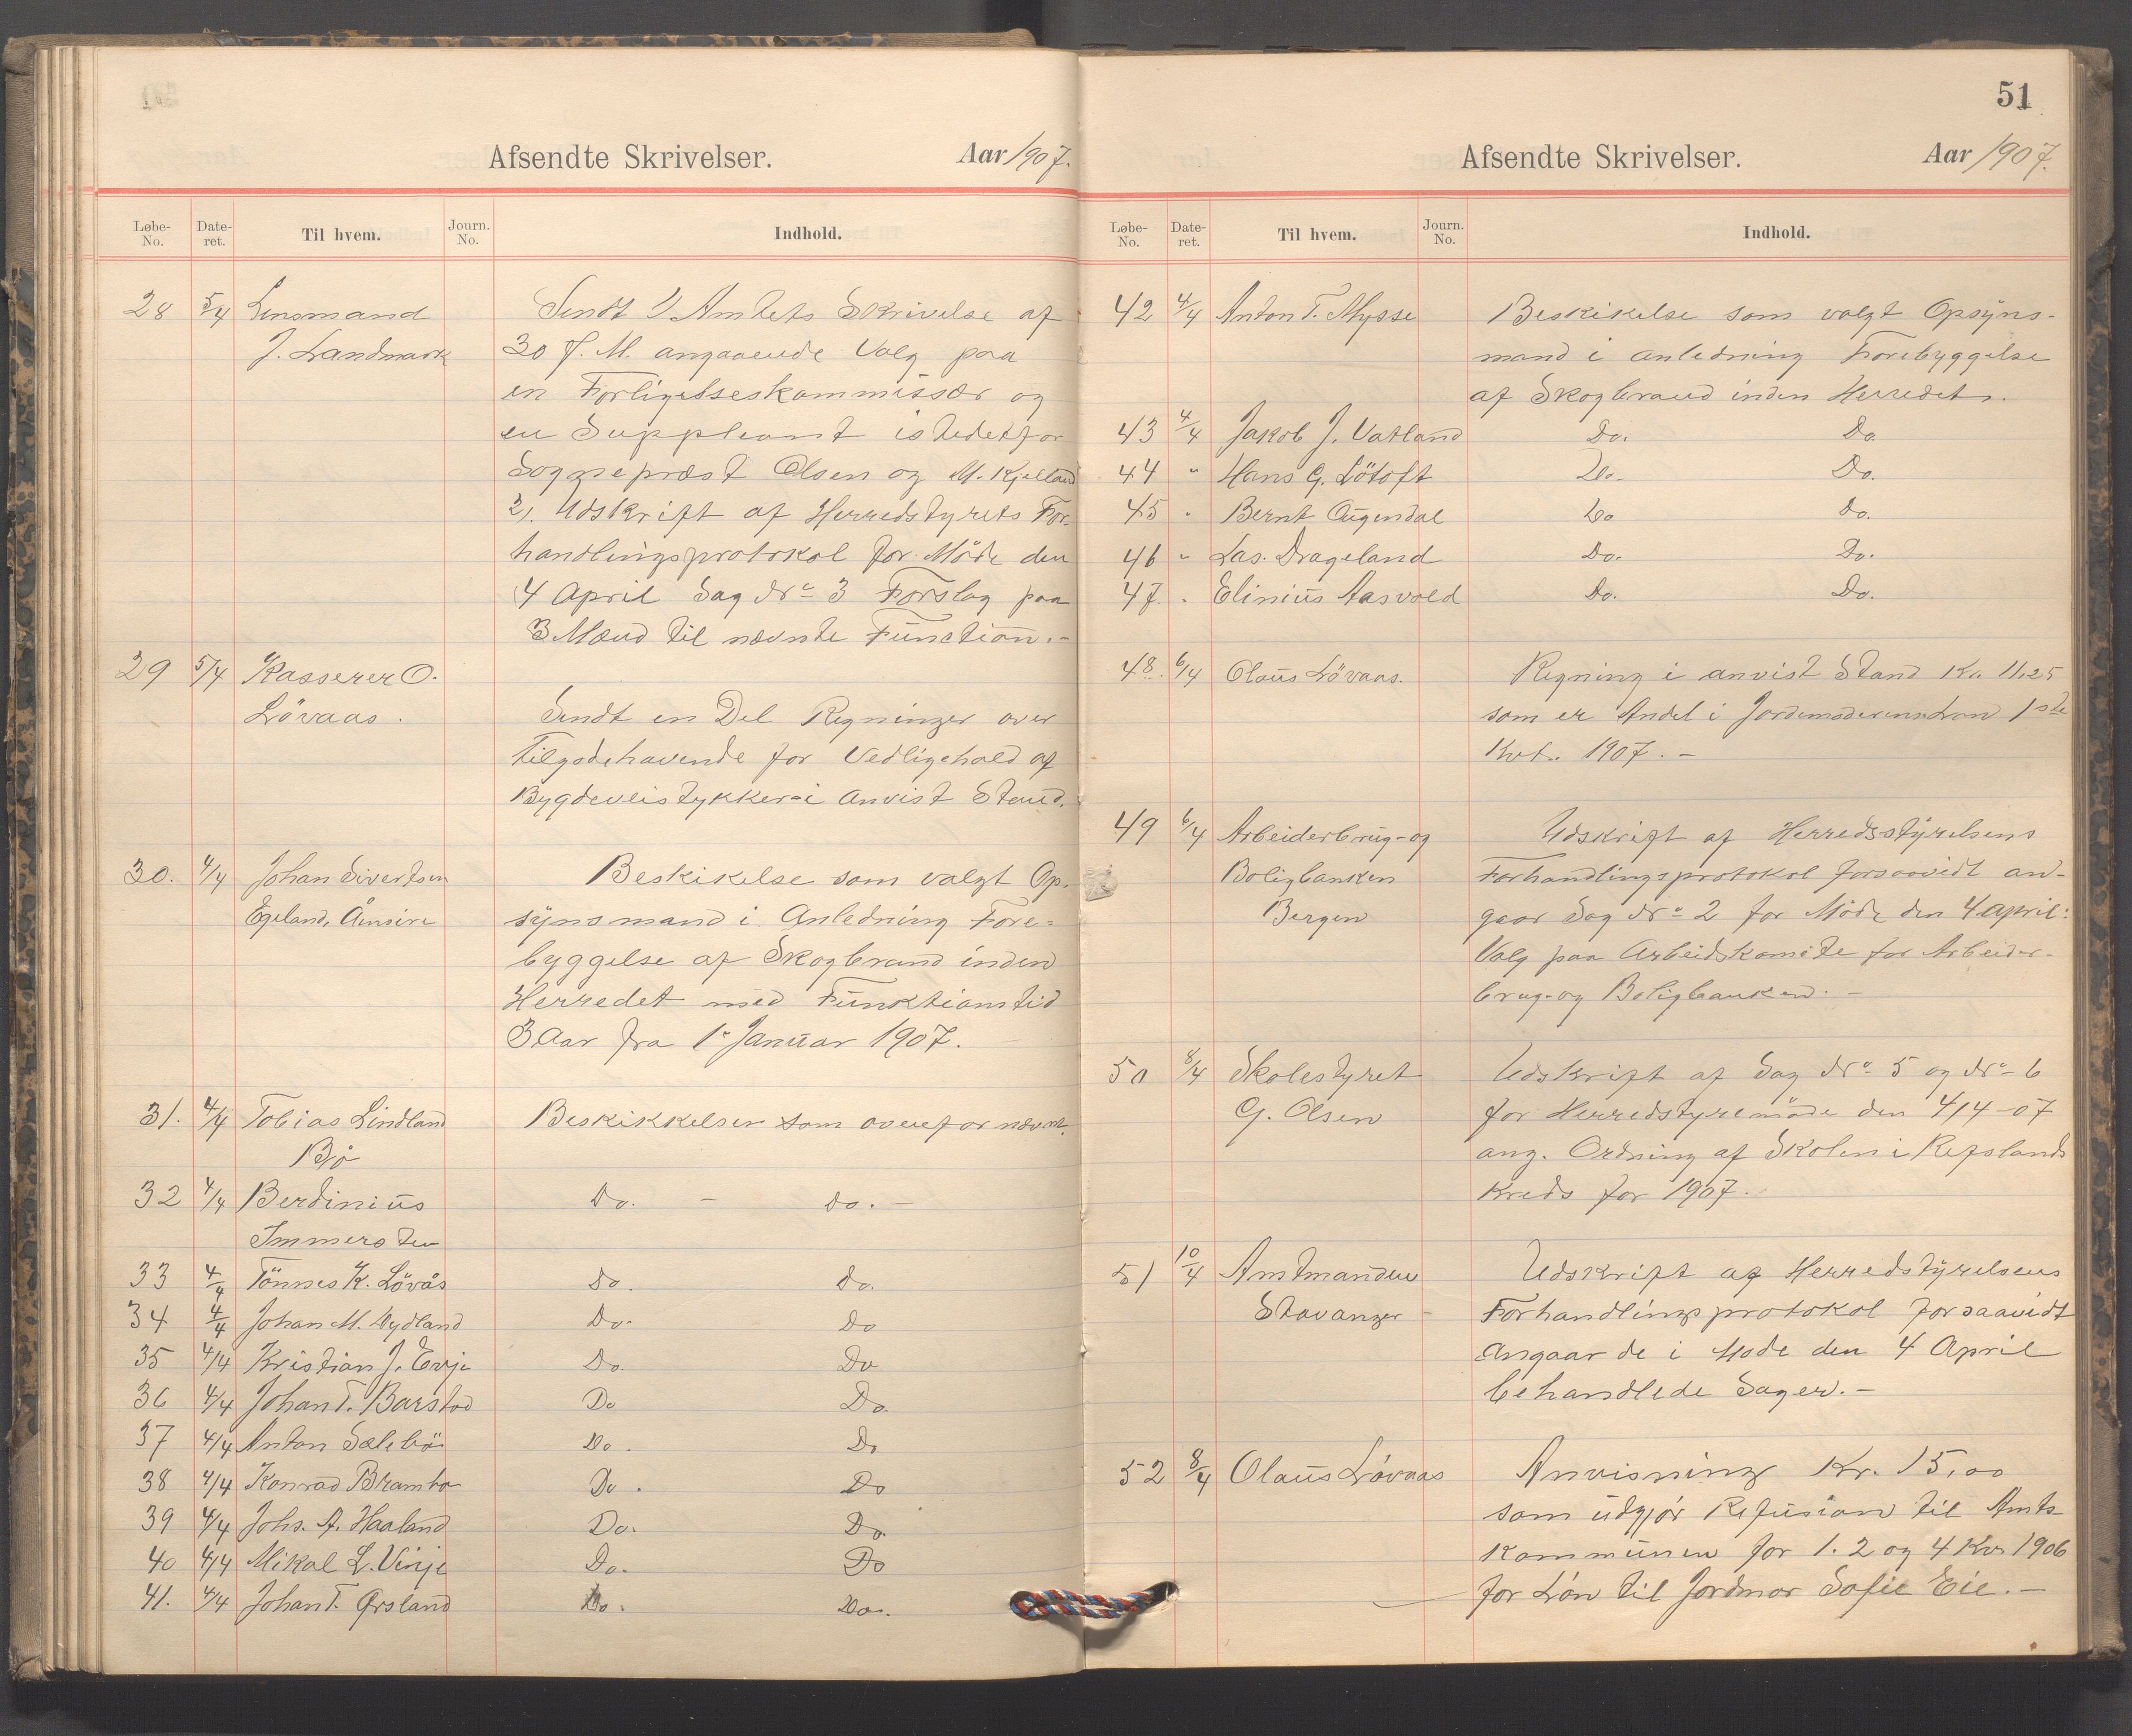 Afsendte Skrivelser. Aar 1907.
Løbe-No. Date-ret. Til hvem. Journ. No. Indhold.
28 5/4 Lensmand Sendt 1) Amtets Skrivelse af
J. Landmark 30 f. M. angaaende Valg paa
en Forligelseskommissær og
en Suppleant istedetfor
Sogneprest Olsen og M. Kjelland
2). Udskrift af Herredstyrets For-
handlingsprotokol for Möde den
4 April Sag Nr 3 Forslag paa
3 Mænd til nævnte Function.-
29 5/4 Kasserer O.
Lövaas. Sendt en Del Regninger over
Tilgodehavende for Vedligehold af
Bygdeveistykker i Anvist Stand.
30. 4/4 Johan Sivertsen Beskikelse som valgt Op-
Egeland, Åmsire synsmand i Anledning Fore-
byggelse af Skogbrand inden
Herredet med Funktionstid
3 Aar fra 1 Januar 1907.
31. 4/4 Tobias Lindland Beskikkelser som ovenfor nævnt.
Bö
32 4/4 Berdinius Do. - do. -
Immersten
33 4/4 Tönnes K. Lövås Do. do.
34 4/4 Johan M. Dydland Do. Do
35 4/4 Kristian J. Eeje Do. Do
36 4/4 Johan T. Barstad Do Do.
37 4/4 Anton Salebö Do. Do
38 4/4 Konrad Brambo Do. Do
39 4/4 Johs. A. Haaland Do. Do.
40 4/4 Mikal L. Vinje Do. Do
41. 4/4 Johan T. Örsland Do. Do.
51
Afsendte Skrivelser. Aar 1907.
Løbe-No. Date-ret. Til hvem. Journ. No. Indhold.
42 4/4 Anton T. Mysse Beskikelse som valgt Opsyns-
mand i anledning Forebyggelse
af Skogbrand inden Herredet.
43 4/4 Jakob J. Vatland Do. Do.
44 " Hans G. Lötoft Do. Do.
45 " Bernt Augendal Do Do.
46 " Las. Drageland Do. Do.
47. " Elinius Aasvold Do. Do.
48. 6/4 Olaus Lövaas. Regning i anvist Stand Kr. 11,25
som er Andel i Jordemoderens Løn 1ste
Kvt. 1907. -
49 6/4 Arbeiderbrug- og Udskrift af Herredsstyrelsens
Boligbanken Forhandlingsprotokol forsaavidt an-
Bergen gaar Sag Nr 2 for Möde den 4 april:
Valg paa Arbeidskomite for Arbeider-
brug- og Boligbanken. -
50 8/4 Skolestyret Udskrift af Sag Nr 5 og Nr 6
G. Olsen for Herredstyremöde den 4/4-07
ang. Ordning af Skolen i Refslands
Kreds for 1907.
51 10/4 Amtmanden Udskrift af Herredstyrelsens
Stavanger - Forhandlingsprotokol forsaavidt
Angaar de i Møde den 4 April
behandlede Sager. -
52 8/4 Olaus Lövaas Anvisning Kr. 15,00
som udgjør Refusion til Amts
Kommunen for 1. 2 og 4 Kv. 1906
for Løn til Jordmor Sofie Eie. -